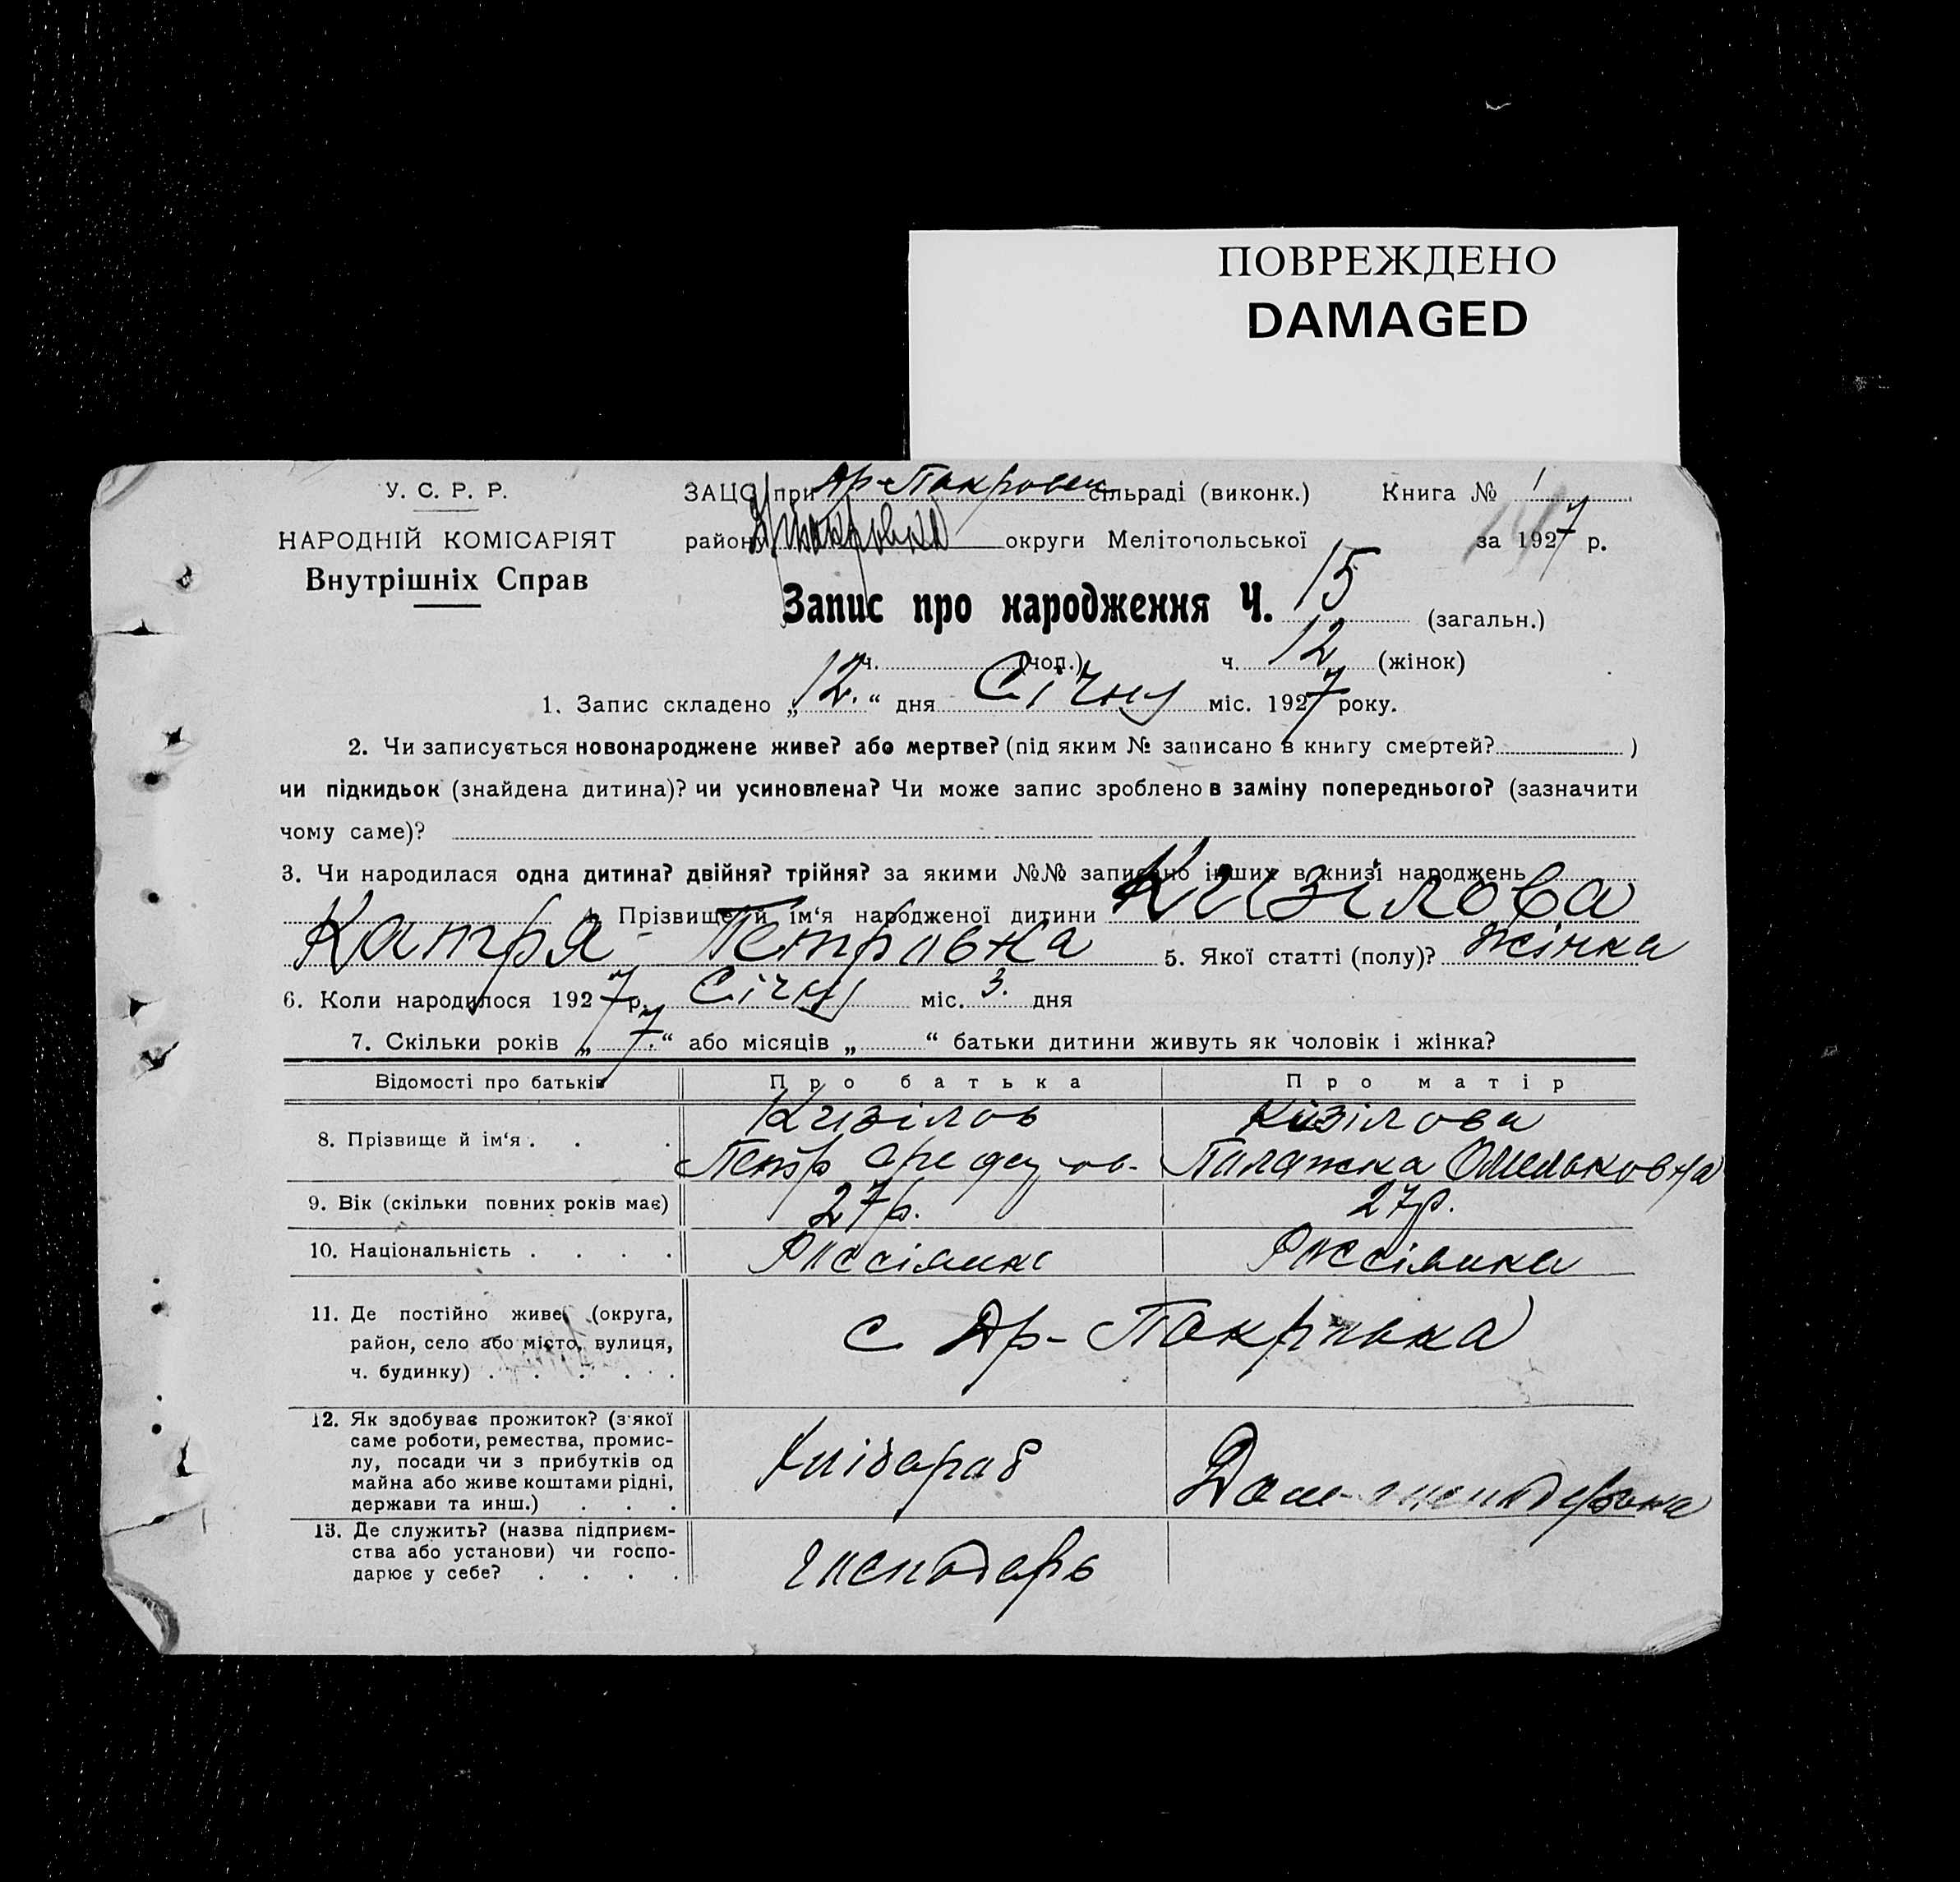 ПОВРЕЖДЕНО
DAMAGED
У. С. Р. Р.
НАРОДНІЙ КОМІСАРІЯТ
Внутрішніх Справ
ЗАЦС при Др-Покровск сільраді (виконк.) Книга № 1
району округи Мелітопольської за 1927 р.
Запис про народження Ч. 15 (загальн.)
ч. (чол.) ч. 12 (жінок)
1. Запис складено „12.“ дня Січня міс. 1927 року.
2. Чи записується новонароджене живе? або мертве? (під яким № записано в книгу смертей? )
чи підкидьок (знайдена дитина)? чи усиновлена? Чи може запис зроблено в заміну попереднього? (зазначити
чому саме)?
3. Чи народилася одна дитина? двійня? трійня? за якими №№ записано інших в книзі народжень
4. Прізвище й ім‘я народженої дитини Кизілова
Катря Петровна 5. Якої статті (полу)? жінка
6. Коли народилося 1927 р. Січня міс. 3. дня
7. Скільки років „7.“ або місяців „ “ батьки дитини живуть як чоловік і жінка?
Відомості про батьків Про батька Про матір
8. Прізвище й ім‘я . . . Кизілов Кізілова
Петр Палажка Омельковна
9. Вік (скільки повних років має) 27р. 27р.
10. Національність . . . . Россіянка
11. Де постійно живе, (округа,
район, село або місто, вулиця,
ч. будинку) . . . . . .
с Др-Покривка
12. Як здобуває прожиток? (з якої
саме роботи, ремества, промис-
лу, посади чи з прибутків од
майна або живе коштами рідні,
держави та инш.) . . .
Хлібороб Дом-
13. Де служить? (назва підприєм-
ства або установи) чи госпо-
дарює у себе? . . . .
господарь